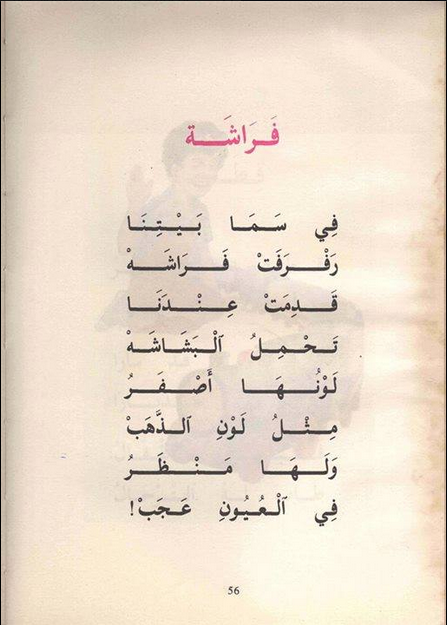 فَرَاشَة
فِي سَمَا بَيْتِنَا
رَفْرَفَتْ فَرَاشَهْ
قَدِمَتْ عِنْدَنَا
تَحْمِلُ الْبَشَاشَهْ
لَوْنُهَا أَصْفَرُ
مِثْلُ لَوْنِ الذَّهَبْ
وَلَهَا مَنْظَرُ
فِي الْعُيُونِ عَجَبْ!
56